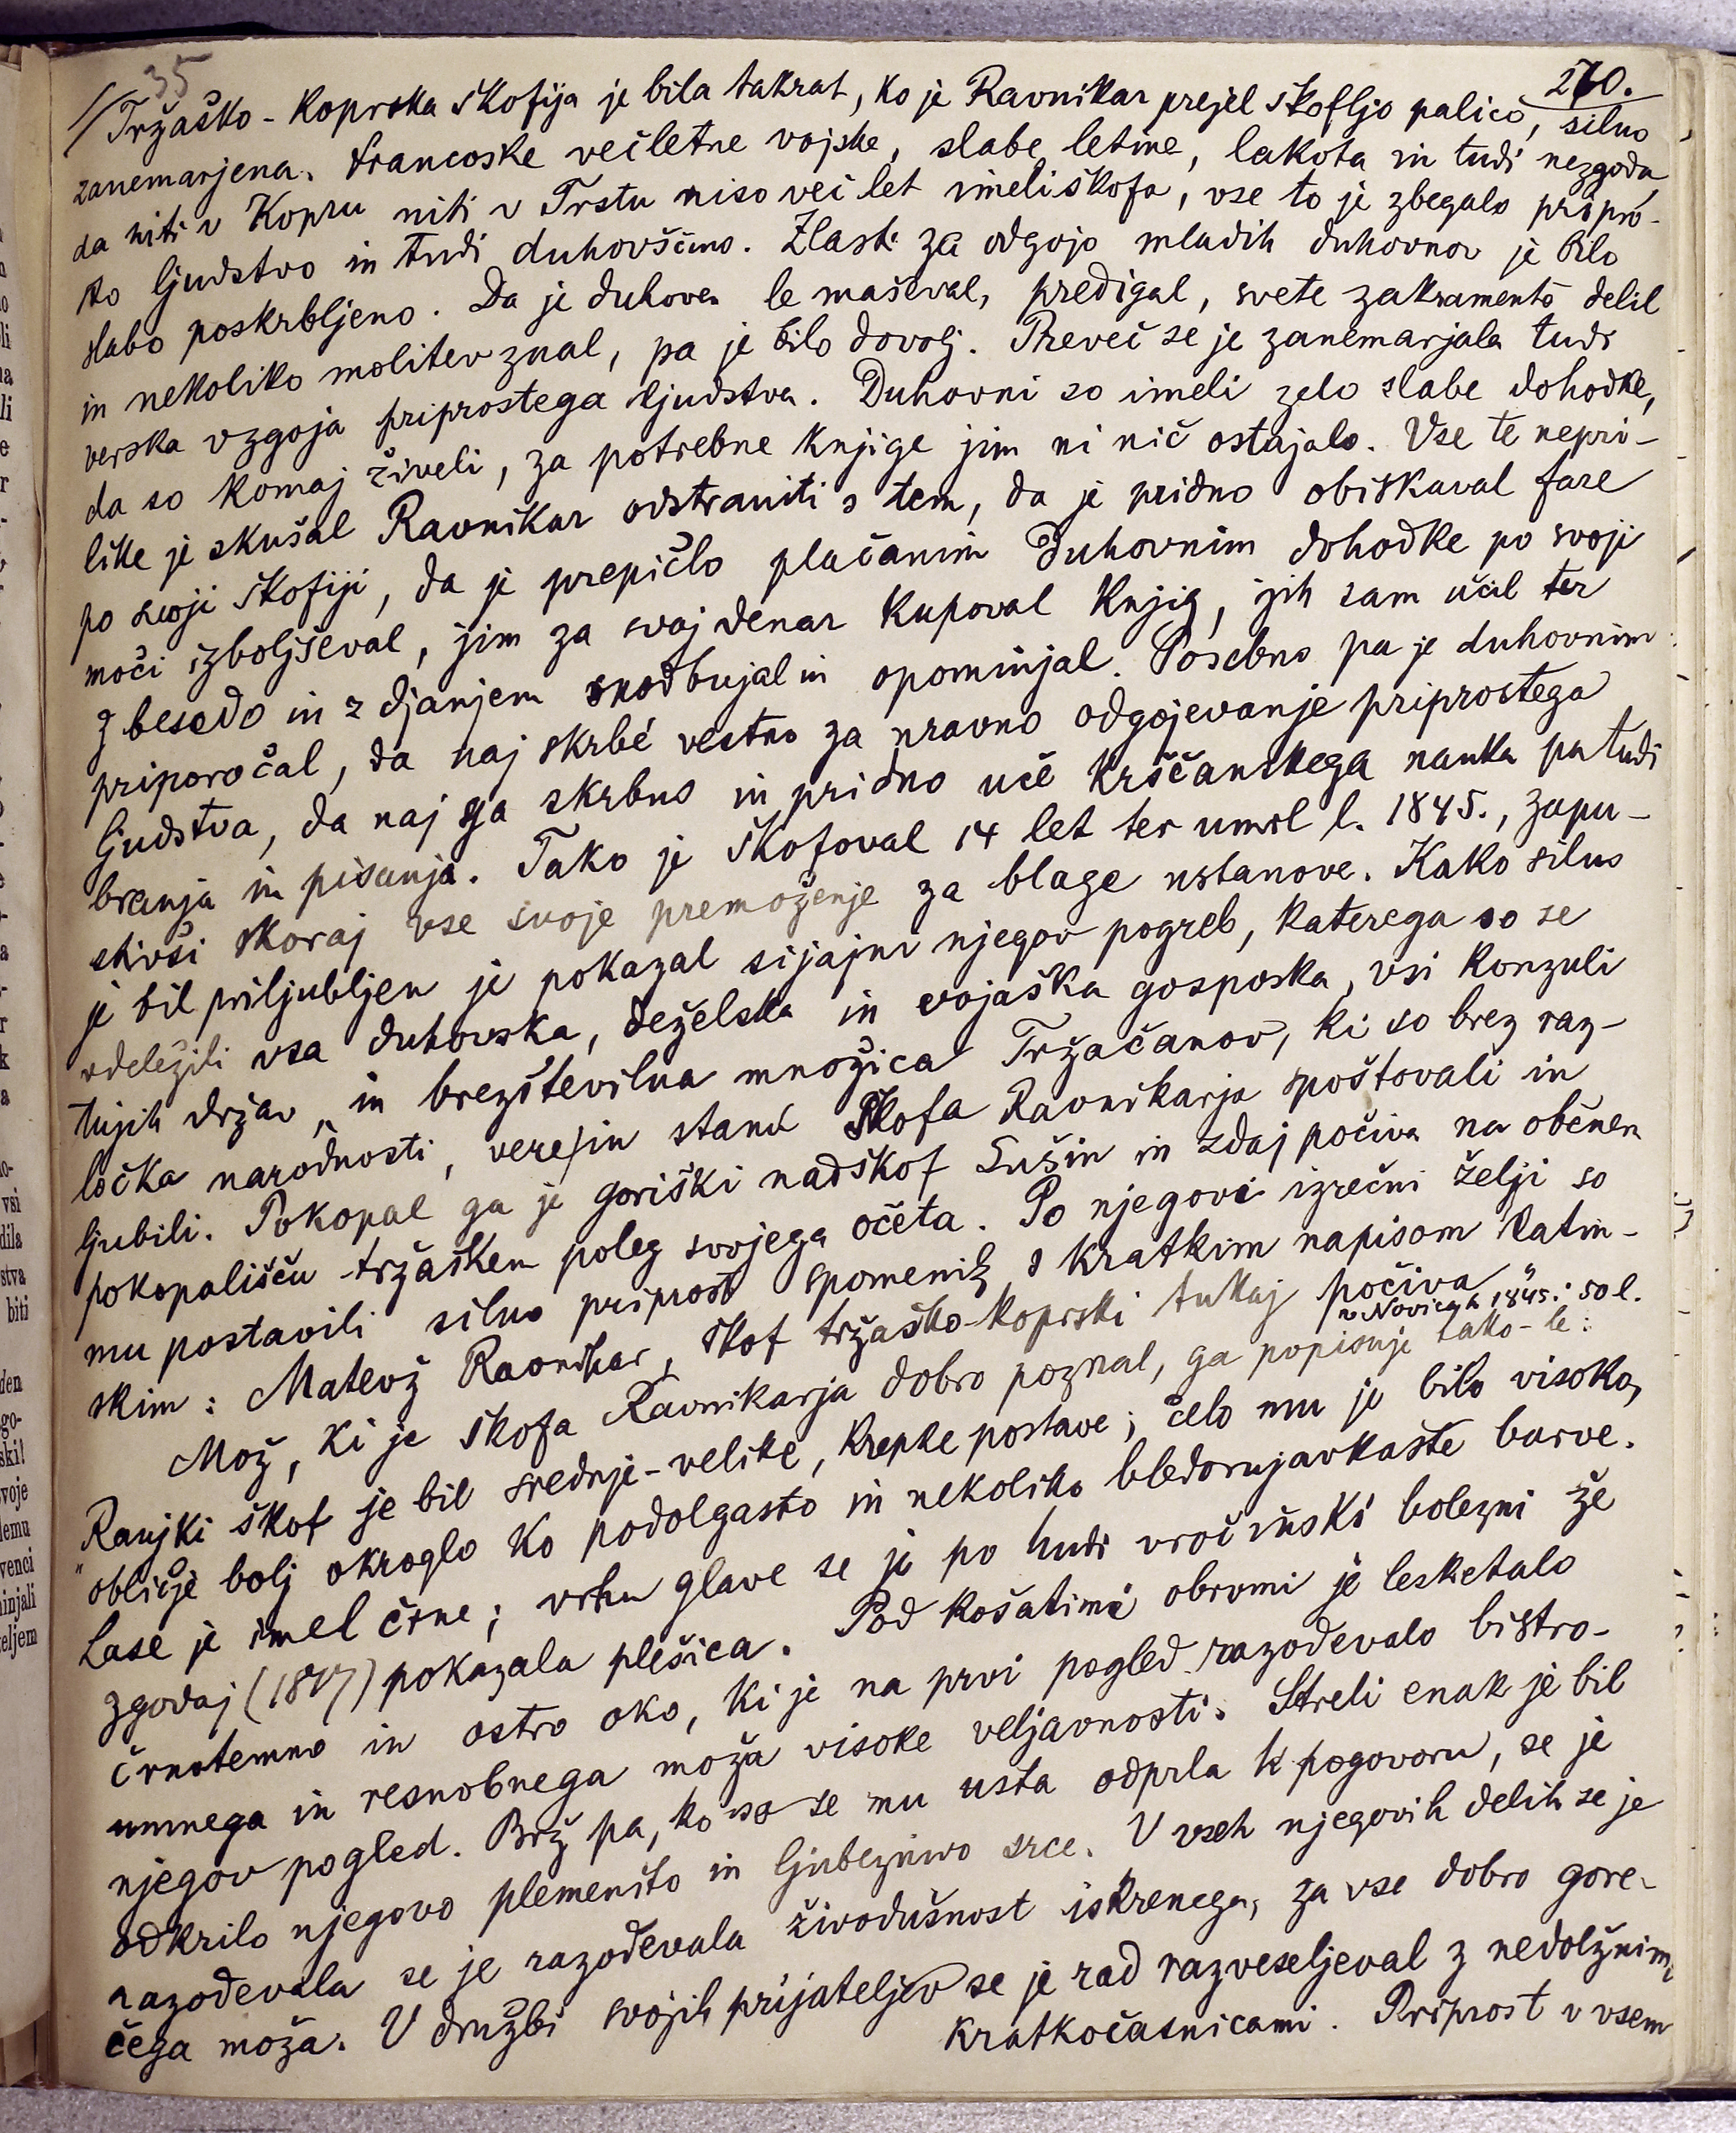 35
270.
Tržaško-Koprska škofija je bila takrat, ko je Ravnikar prejel škofljo palico, silno
zanemarjena. Francoske večletne vojske, slabe letine, lakota in tudi nezgoda,
da niti v Kopru niti v Trstu niso več let imeli škofa, vse to je zbegalo pripro-
sto ljudstvo in tudi duhovščino. Zlasti za odgojo mladih duhovnov je bilo
slabo poskrbljeno. Da je duhoven le maševal, predigal, svete zakramente delil
in nekoliko molitev znal, pa je bilo dovolj. Preveč se je zanemarjala tudi
verska vzgoja priprostega ljudstva. Duhovni so imeli zelo slabe dohodke,
da so komaj živeli, za potrebne knjige jim ni nič ostajalo. Vse te nepri-
like je skušal Ravnikar odstraniti s tem, da je pridno obiskaval fare
po svoji škofiji, da je prepičlo plačanim duhovnim dohodke po svoji
moči izboljševal, jim za svoj denar kupoval knjig, jih sam učil ter
z besedo in z djanjem spodbujal in opominjal. Posebno pa je duhovnim
priporočal, da naj skrbé vestno za nravno odgojevanje priprostega
ljudstva, da naj ga skrbno in pridno uče krščanskega nauka pa tudi
branja in pisanja. Tako je škofoval 14 let ter umrl l. 1845., zapu-
stivši skoraj vse svoje premoženje za blage ustanove. Kako silno
je bil priljubljen je pokazal sijajni njegov pogreb, katerega so se
vdeležili vsa duhovska, deželska in vojaška gosposka, vsi konzuli
tujih držav, in brezštevilna množica Tržačanov, ki so brez raz-
ločka narodnosti, vere in stanu škofa Ravnikarja spoštovali in
ljubili. Pokopal ga je goriški nadškof Lušin in zdaj počiva na občnem
pokopališču tržaškem poleg svojega očeta. Po njegovi izrečni želji so
mu postavili silno priprost spomenik s kratkim napisom latin-
skim: Matevž Ravnikar, škof tržaško-koprski tukaj počiva"
v Novicah 1845: 50 l.
Mož, ki je škofa Ravnikarja dobro poznal, ga popisuje tako-le:
"Ranjki škof je bil srednje-velike, krepke postave; čelo mu je bilo visoko,
obličje bolj okroglo ko podolgasto in nekoliko bledorujavkaste barve.
Lase je imel črne; vrhu glave se je po hudi vročinski bolezni že
zgodaj (1817) pokazala plešica. Pod košatimi obrvmi je lesketalo
črnotemno in ostro oko, ki je na prvi pogled razodevalo bistro-
umnega in resnobnega moža visoke veljavnosti. Streli enak je bil
njegov pogled. Brž pa, ko so se mu usta odprla k pogovoru, se je
odkrilo njegovo plemenito in ljubeznivo srce. V vseh njegovih delih se je
razodevala se je razodevala živodušnost iskrenega, za vse dobro gore-
čega moža. V družbi svojih prijateljev se je rad razveseljeval z nedolžnimi
kratkočasnicami. Priprost v vsem